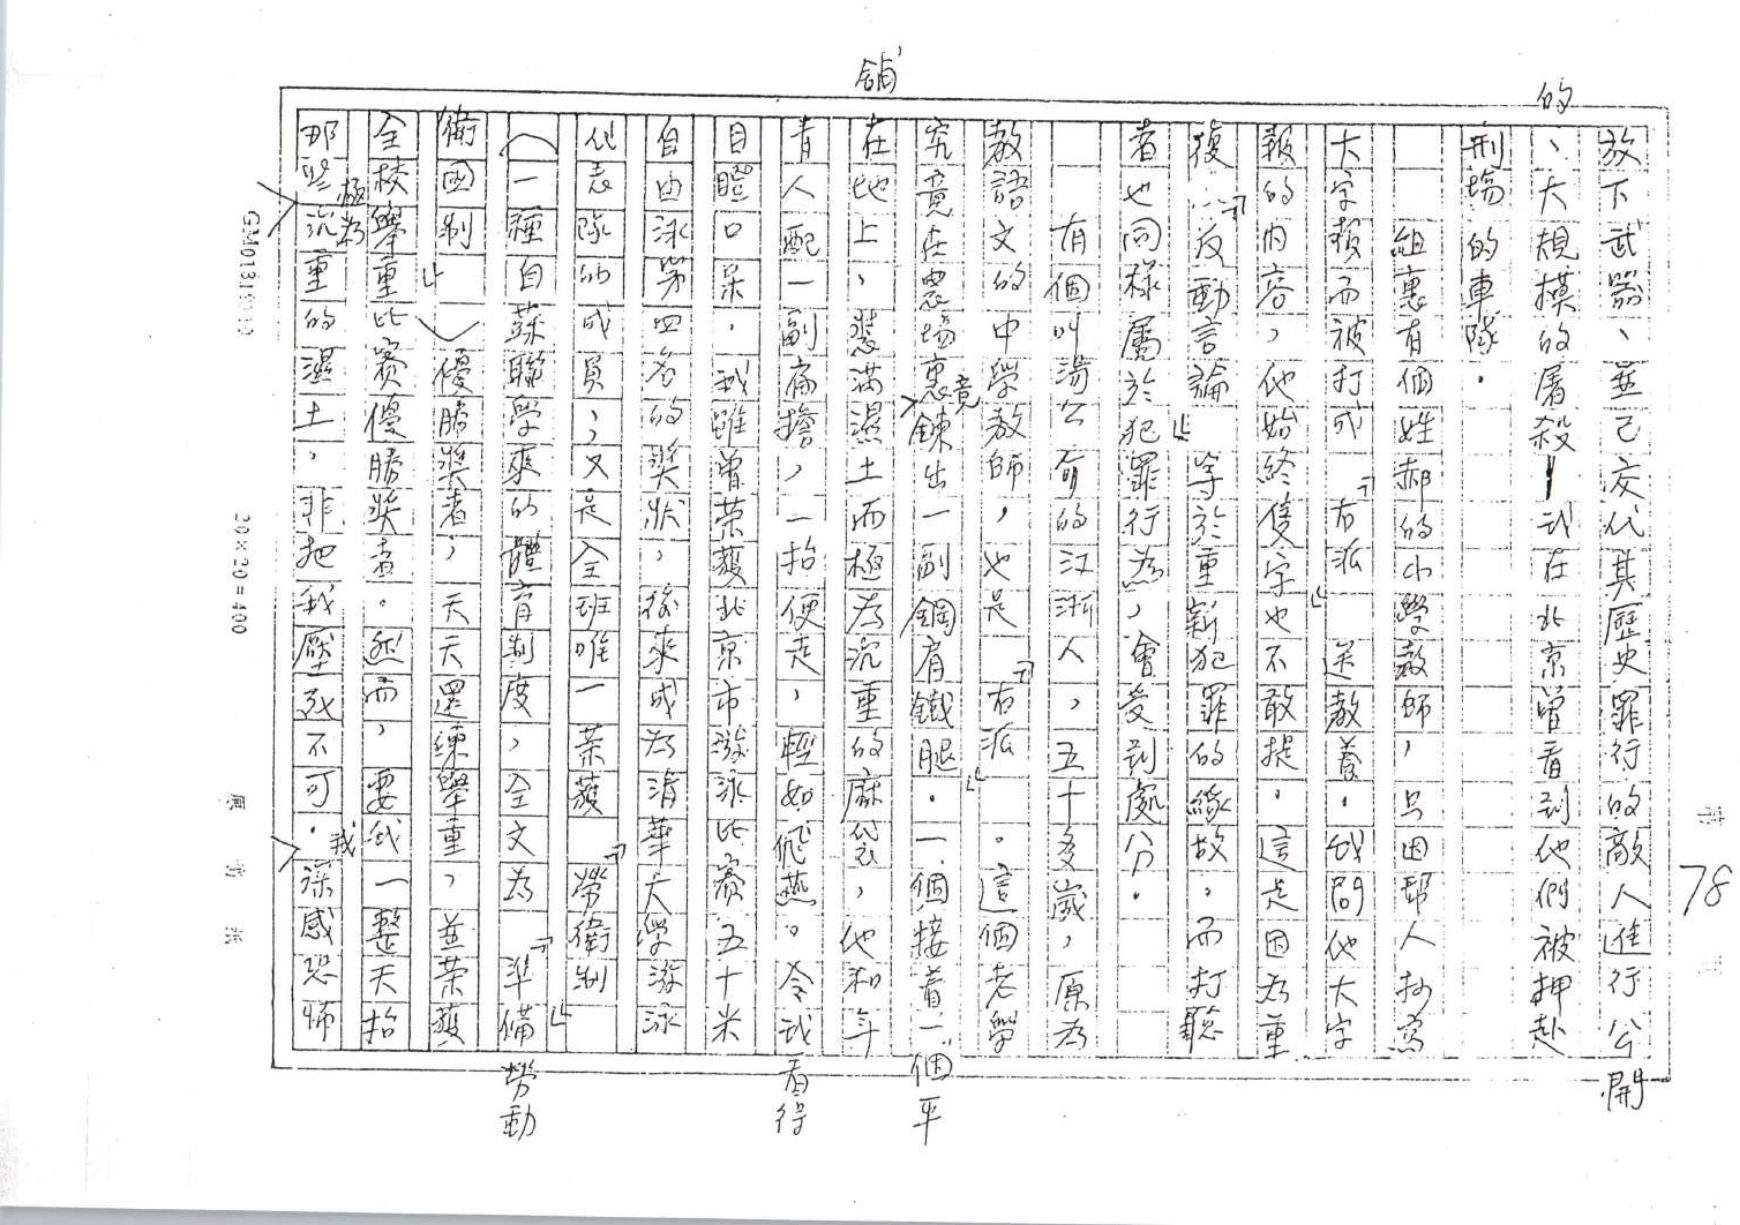 放下武器、並已交代其歷史罪行的敵人進行公開
的、大規模的屠殺—我在北京曾看到他們被押赴
刑場的車隊。
組裏有個姓郝的小學教師，只因幫人抄寫
大字報而被打成「右派」送教養。我問他大字
報的內容，他始終隻字也不敢提。這是因為重
復…「反動言論」等於重新犯罪的緣故，而打聽
者也同樣屬於犯罪行為，會受到處分。
有個叫湯公奇的江浙人，五十多歲，原為
教語文的中學教師，也是「右派」。這個老學
究竟在農場裏竟鍊出一副鋼肩鐵腿。一個接着一個平
舖在地上，裝滿濕土而極為沉重的麻袋，他和年
青人配一副扁擔，一抬便走，輕如飛燕。令我看得
目瞪口呆，我雖曾榮獲北京市游泳比賽五十米
自由泳第四名的獎狀，後來成為清華大學游泳
代表隊的成員，又是全班唯一榮獲「勞衛制
（一種自蘇聯學來的體育制度，全文為「準備勞動
衛國制」）優勝獎者，天天還練舉重，並榮獲
全校舉重比賽優勝獎者。然而，要我一整天抬
那些極為沉重的濕土，非把我壓死不可。我深感恐怖
第78頁
GM013
20×20=400